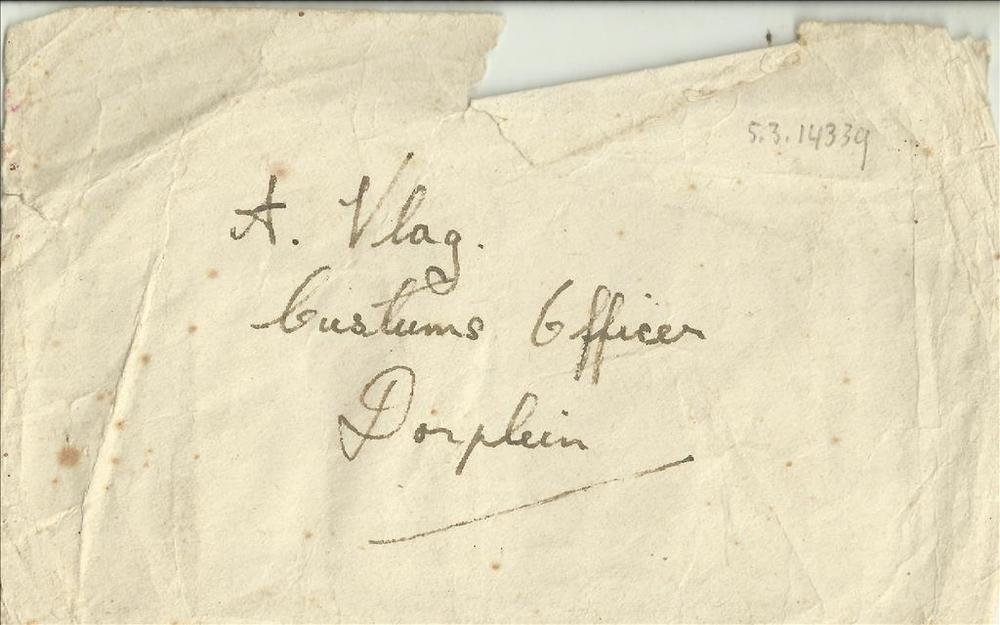 5.3.14339
A. Vlag.
Customs Officer
Dorplein